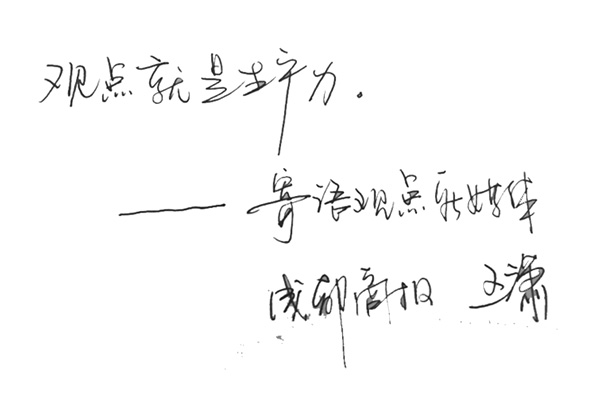 观点就是生产力.
——寄语观点新媒体
成都商报 王潇